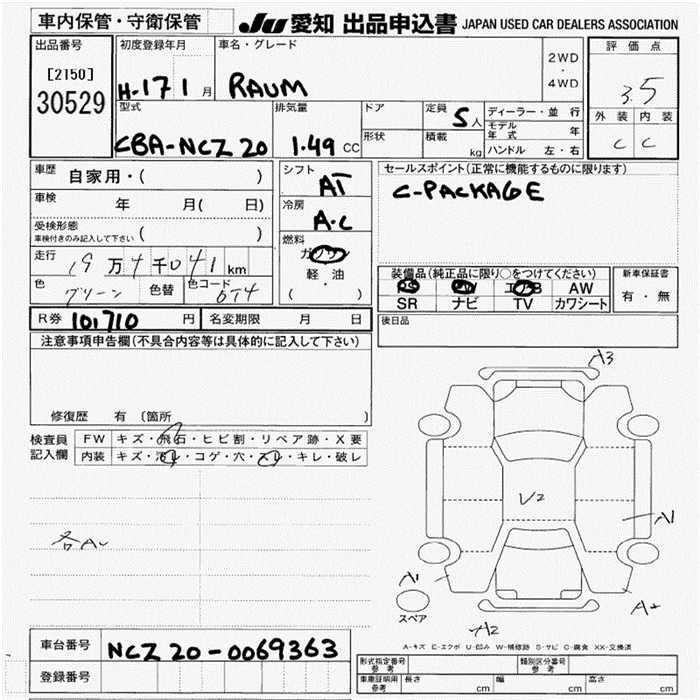 車内保管・守衛保管 JU 愛知 出品申込書 JAPAN USED CAR DEALERS ASSOCIATION
出品番号 初度登録年月 車名・グレード 2WD・4WD 評価点
[2150]
30529 H-17 1月 RAUM 3.5
型式 排気量 ドア 定員 5人 ディーラー・並行 外装 内装
モデル年式 年
CBA-NCZ20 1.49 CC 形状 積載 kg ハンドル 左・右 C C
車歴 自家用・( ) シフト AT セールスポイント(正常に機能するものに限ります)
車検 年 月( 日) 冷房 A・C C-PACKAGE
受検形態 車検付きのみ記入して下さい ( )
燃料 ガソリン
走行 19万4千041km 軽・油
装備品(純正品に限り○をつけてください) 新車保証書
色 グリーン 色替 色コード 6T4 ( ) PS PW エアB AW 有・無
SR ナビ TV カワシート
R券 101710 円 名変期限 月 日 後日品
注意事項申告欄(不具合内容等は具体的に記入して下さい)
修復歴 有 〔箇所 〕
検査員記入欄 FW キズ・飛石・ヒビ割・リペア跡・X要
内装 キズ・汚レ・コゲ・穴・スレ・キレ・破レ
A3
U2
A1
各A
A1
スペア
A2
A-キズ E-エクボ U-凹み W-補修跡 S-サビ C-腐食 XX-交換済
車台番号 NCZ20-0069363
登録番号
形式指定番号 参考 類別区分番号 参考
車庫証明用 参考 長さ cm 幅 cm 高さ cm